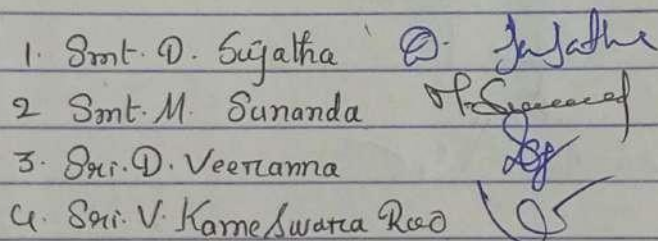 1. Smt. D. Sujatha D. Sujatha
2 Smt. M. Sunanda M. Sunanda
3. Sri. D. Veeranna
4. Sri. V. Kameswara Rao